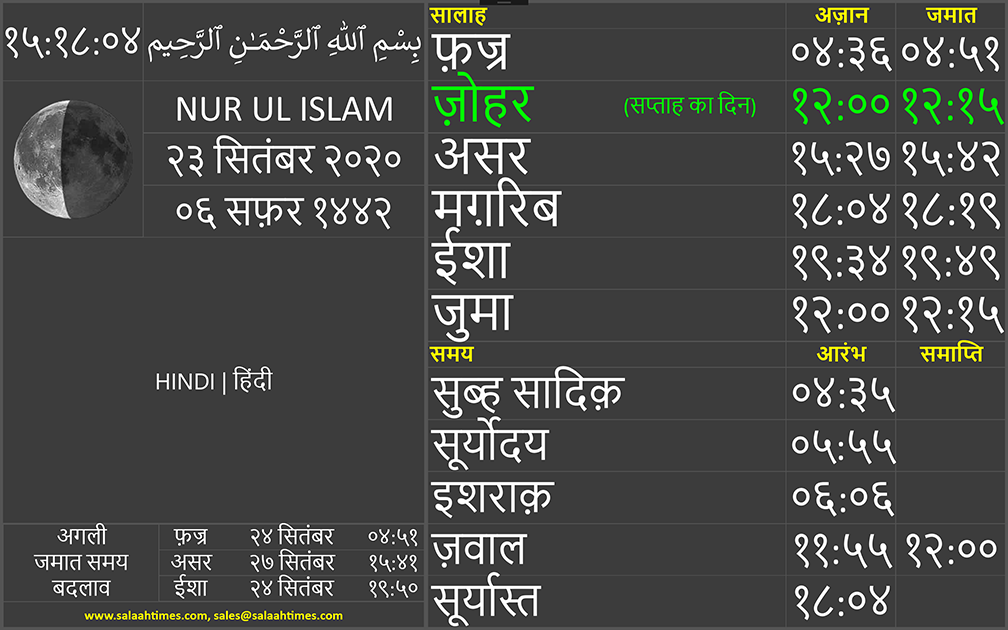 १५:१८:०४ بِسْمِ ٱللَّهِ ٱلرَّحْمَـٰنِ ٱلرَّحِيم
NUR UL ISLAM
२३ सितंबर २०२०
०६ सफ़र १४४२
HINDI | हिंदी
अगली जमात समय बदलाव
फ़ज्र २४ सितंबर ०४:५१
असर २७ सितंबर १५:४१
ईशा २४ सितंबर १९:५०
www.salaahtimes.com, sales@salaahtimes.com
सालाह अज़ान जमात
फ़ज्र ०४:३६ ०४:५१
ज़ोहर (सप्ताह का दिन) १२:०० १२:१५
असर १५:२७ १५:४२
मग़रिब १८:०४ १८:१९
ईशा १९:३४ १९:४९
जुमा १२:०० १२:१५
समय आरंभ समाप्ति
सुब्ह सादिक़ ०४:३५
सूर्योदय ०५:५५
इशराक़ ०६:०६
ज़वाल ११:५५ १२:००
सूर्यास्त १८:०४